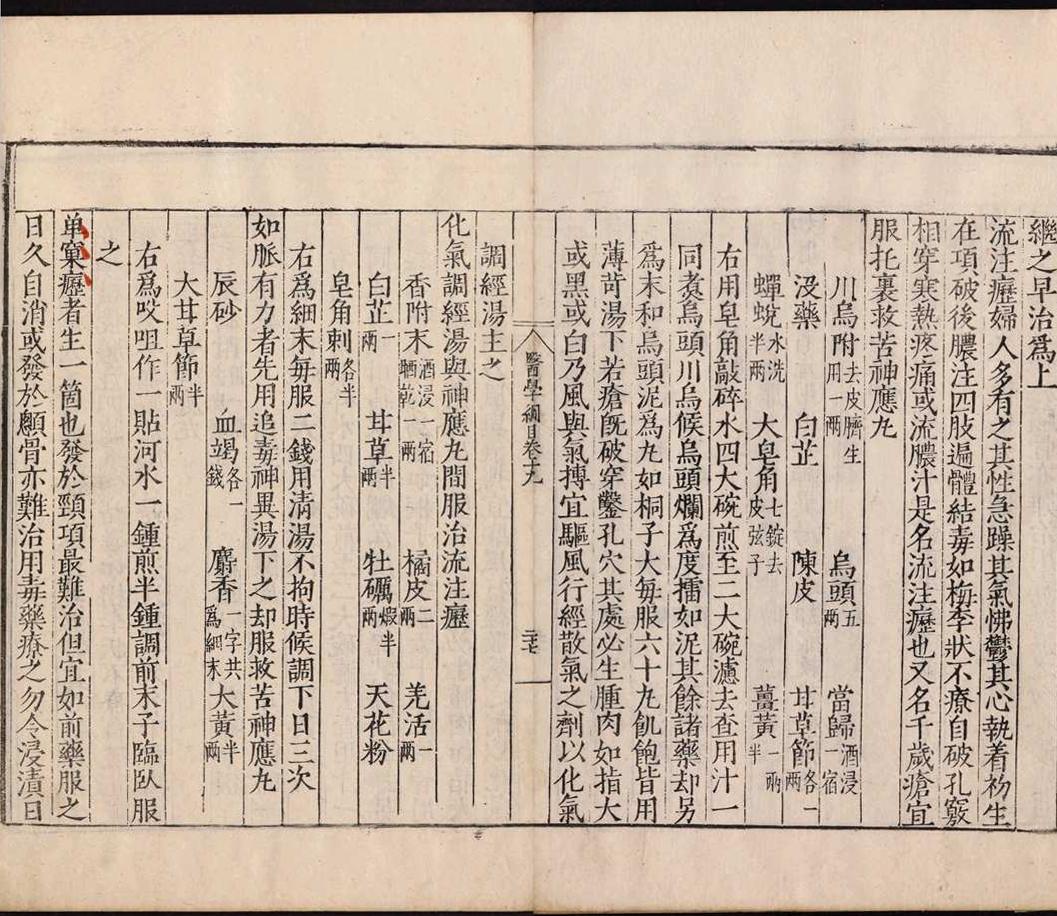 繼之早治爲上
流注癧婦人多有之其性急躁其氣怫鬱其心執着初生
在項破後膿注四肢遍體結毒如梅李狀不療自破孔竅
相穿寒熱疼痛或流膿汁是名流注癧也又名千歲瘡宜
服托裏救苦神應丸
川烏附去皮臍生用一兩 烏頭五兩 當歸酒浸一宿
沒藥 白芷 陳皮 甘草節各一兩
蟬蛻水洗半兩 大皂角七錠去皮弦子 薑黃一兩半
右用皂角敲碎水四大碗煎至二大碗濾去查用汁一
同煑烏頭川烏候烏頭爛爲度擂如泥其餘諸藥却另
爲末和烏頭泥爲丸如桐子大每服六十丸飢飽皆用
薄荷湯下若瘡既破穿鑿孔穴其處必生腫肉如指大
或黑或白乃風與氣搏宜驅風行經散氣之劑以化氣
醫學綱目卷十九
三七
調經湯主之
化氣調經湯與神應丸間服治流注癧
香附末酒浸一宿晒乾一兩 橘皮二兩 羌活一兩
白芷一兩 甘草半兩 牡礪煆半兩 天花粉
皂角刺各半兩
右爲細末每服二錢用清湯不拘時候調下日三次
如脈有力者先用追毒神異湯下之却服救苦神應丸
辰砂 血竭各一錢 麝香一字共爲細末 大黃半兩
大甘草節半兩
右爲㕮咀作一貼河水一鍾煎半鍾調前末子臨臥服
之
单窠癧者生一箇也發於頸項最難治但宜如前藥服之
日久自消或發於顱骨亦難治用毒藥療之勿令浸漬日